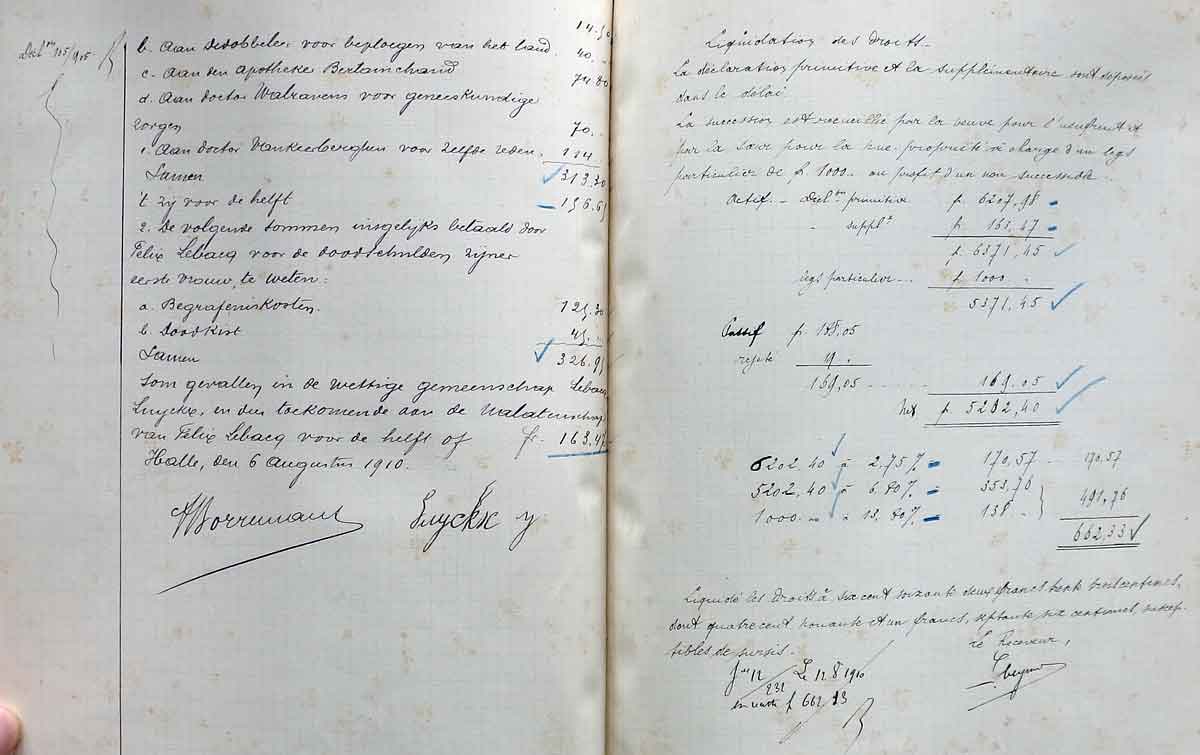 14.50
b. Aan Dedobbeleer voor beploegen van het land. 40. "
c. Aan den Apotheke Bertainchand 74 80
d. Aan doctor Walravens voor geneeskundige
zorgen 70. "
e. Aan doctor Vankeerberghen voor zelfde reden. 114
Samen 313,30
't zij voor de helft 156.65
2. De volgende sommen insgelijks betaald door
Felix Lebacq voor de doodschulden zijner
eerste vrouw, te weten:
a. Begrafeniskosten. 125.30
b. Doodkist 45. "
Samen 326.95
Som gevallen in de wettige gemeenschap Lebacq
Luyckx, en dus toekomende aan de nalatenschap
van Felix Lebacq voor de helft of fr. 163.47
Halle, den 6 Augustus 1910.
Luyckx
Liquidation des droits.
La déclaration primitive et la supplémentaire sont déposées
dans le délai.
La succession est recueillie par la veuve pour l'usufruit et
par la sœur pour la nue propriété à charge d'un legs
particulier de f. 1000. au profit d'un non successible.
Actif. - Décl.on primitive f. 6207,98
" suppl.e f. 163,47
f. 6371,45
legs particulier f. 1000. "
5371,45
Passif f. 188,05
rejeté 19.
169,05 169,05
net f. 5202,40
5202,40 à 2,75% = 170,57 170,57
5202,40 à 6.80% = 353,76
1000. " à 13,80% = 138 " 491,76
662,33
Liquidé les droits à six cent soixante deux francs trente trois centimes,
dont quatre cent nonante et un francs, septante six centimes, suscep-
tibles de sursis.
Le Receveur,
Le 12 8 1910
231